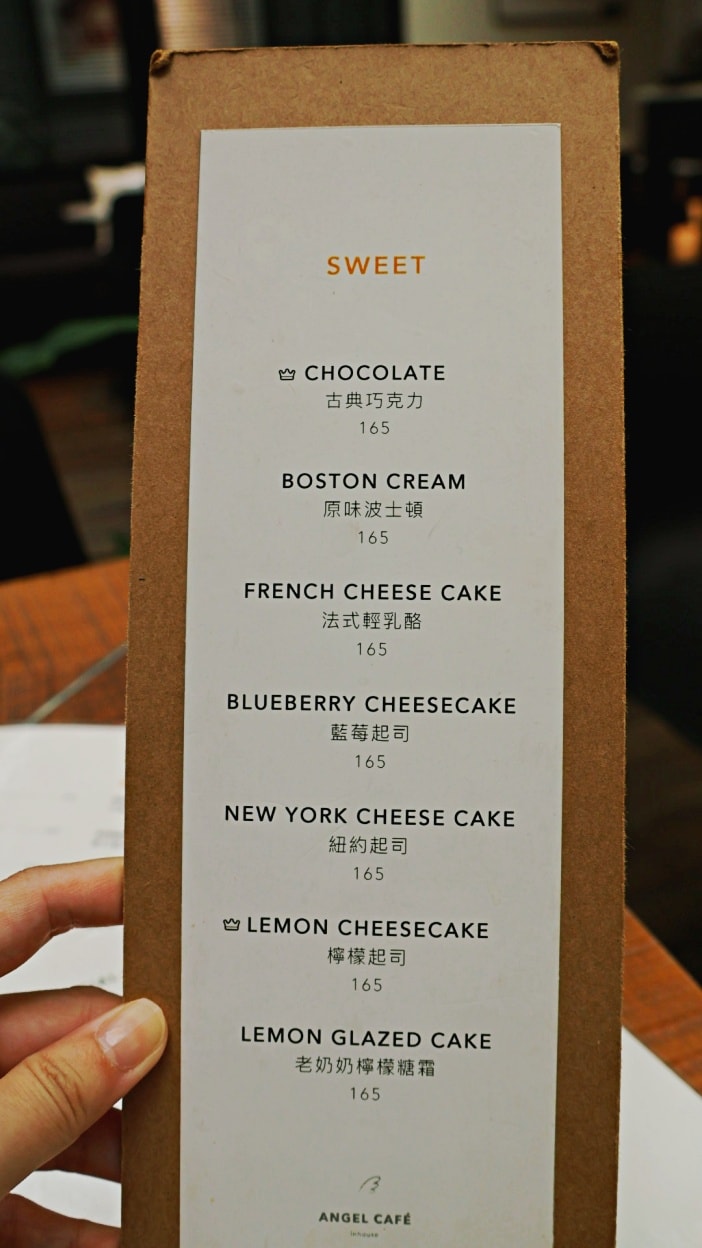 SWEET
CHOCOLATE
古典巧克力
165
BOSTON CREAM
原味波士頓
165
FRENCH CHEESE CAKE
法式輕乳酪
165
BLUEBERRY CHEESECAKE
藍莓起司
165
NEW YORK CHEESE CAKE
紐約起司
165
LEMON CHEESECAKE
檸檬起司
165
LEMON GLAZED CAKE
老奶奶檸檬糖霜
165
ANGEL CAFÉ
inhouse